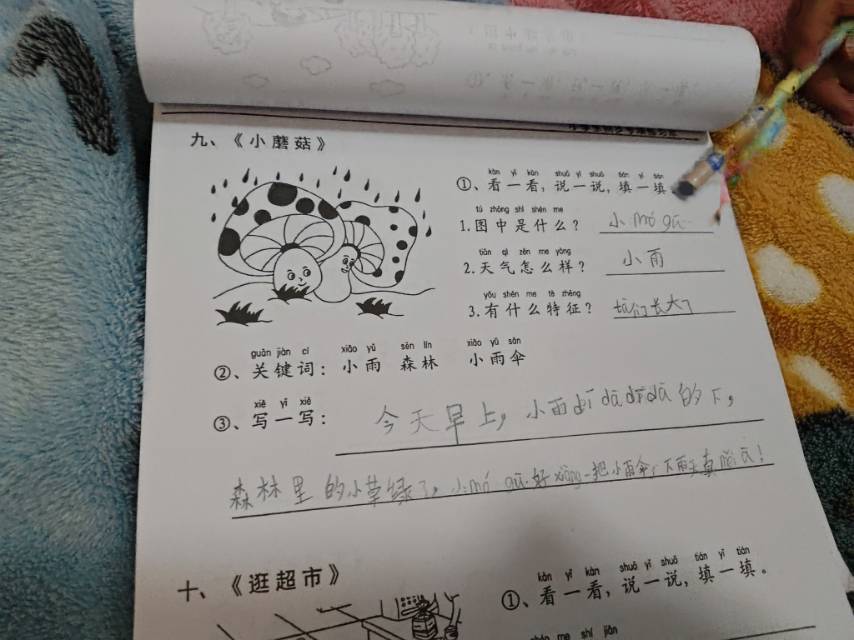 九、《小蘑菇》
kàn yì kàn shuō yì shuō tián yì tián
①、看一看，说一说，填一填
tú zhōng shì shén me
1.图中是什么？ 小mó gū
tiān qì zěn me yàng
2.天气怎么样？ 小雨
yǒu shén me tè zhēng
3.有什么特征？ 它们长大了
guān jiàn cí xiǎo yǔ sēn lín xiǎo yǔ sǎn
②、关键词：小雨 森林 小雨伞
xiě yì xiě
③、写一写：今天早上，小雨dī dā dī dā的下，
森林里的小草绿了，小mó gū好xiàng一把小雨伞，下雨天真
十、《逛超市》
kàn yì kàn shuō yì shuō tián yì tián
①、看一看，说一说，填一填。
me shì jiān